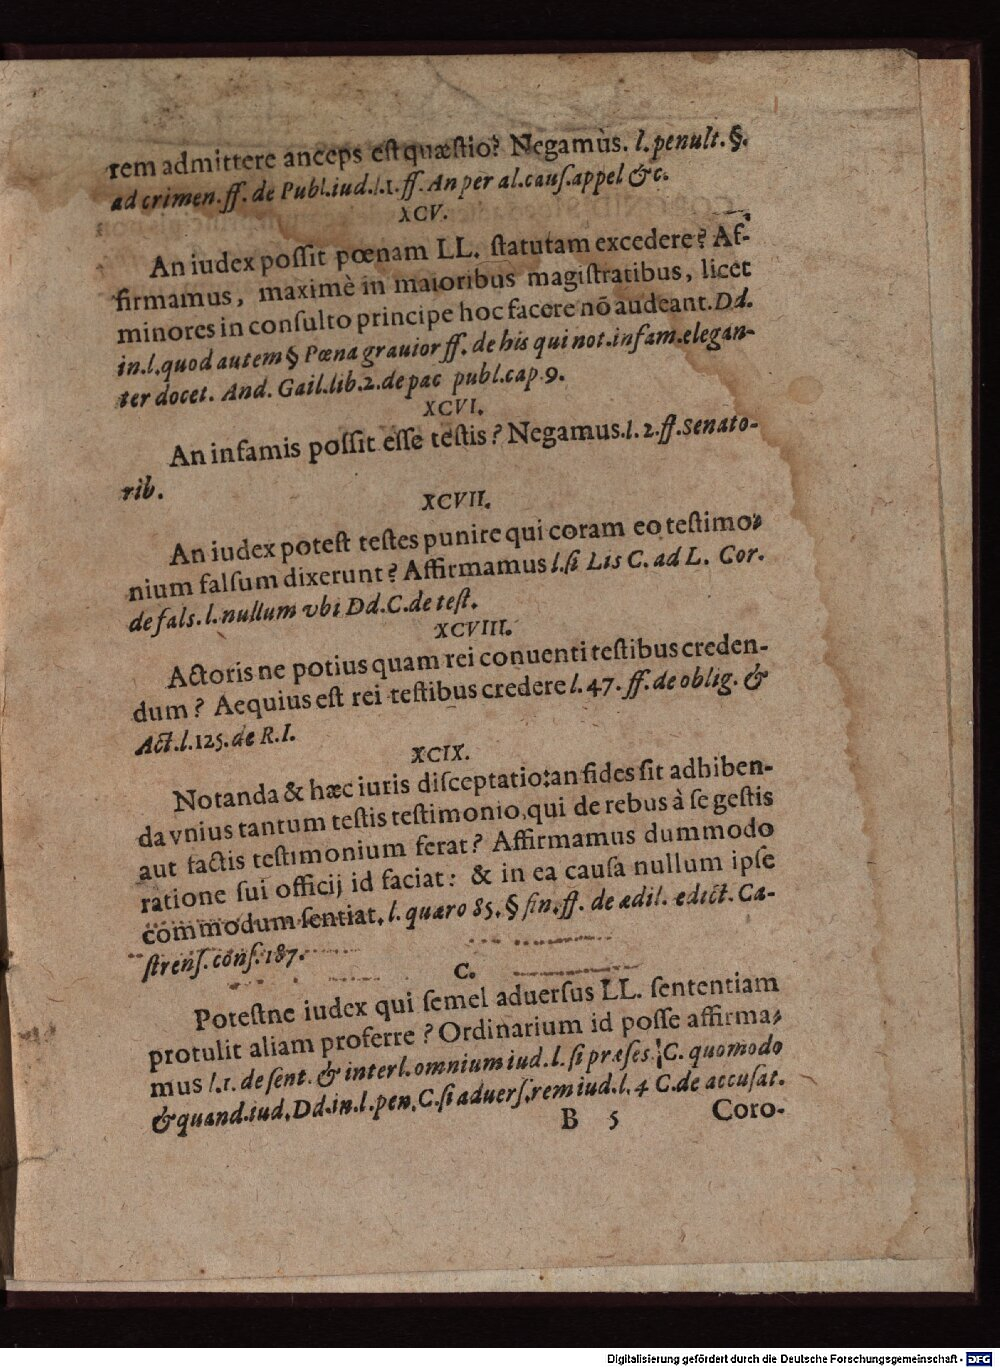 rem admittere anceps eſt quæſtio? Negamùs. l. penult. §.
ad crimen. ff. de Publ. iud. l. 1. ff. An per al. cauſ. appel &c.
XCV.
An iudex poſſit pœnam LL. ſtatutam excedere? Af-
firmamus, maximè in maioribus magiſtratibus, licet
minores in conſulto principe hoc facere nõ audeant. Dd.
in. l. quod autem § Pœna grauior ff. de his qui not. infam. elegan-
ter docet. And. Gail. lib. 2. de pac publ. cap. 9.
XCVI.
An infamis poſſit eſſe teſtis? Negamus. l. 2. ff. Senato-
rib.
XCVII.
An iudex poteſt teſtes punire qui coram eo teſtimo-
nium falſum dixerunt? Affirmamus l. ſi Lis C. ad L. Cor.
de fals. l. nullum vbi Dd. C. de teſt.
XCVIII.
Actoris ne potius quam rei conuenti teſtibus creden-
dum? Aequius eſt rei teſtibus credere l. 47. ff. de oblig. &
Act. l. 125. de R. I.
XCIX.
Notanda & hæc iuris diſceptatio: an fides ſit adhiben-
da vnius tantum teſtis teſtimonio, qui de rebus à ſe geſtis
aut factis teſtimonium ferat? Affirmamus dummodo
ratione ſui officij id faciat: & in ea cauſa nullum ipſe
commodum ſentiat. l. quæro 85. § fin. ff. de ædil. edict. Ca-
ſtrenſ. conſ. 187.
C.
Poteſtne iudex qui ſemel aduerſus LL. ſententiam
protulit aliam proferre? Ordinarium id poſſe affirma-
mus l. 1. de ſent. & interl. omnium iud. l. ſi præſes. C. quomodo
& quand. iud. Dd. in. l. pen. C. ſi aduerſ. rem iud. l. 4 C. de accuſat.
B 5 Coro-
Digitalisierung gefördert durch die Deutsche Forschungsgemeinschaft - DFG